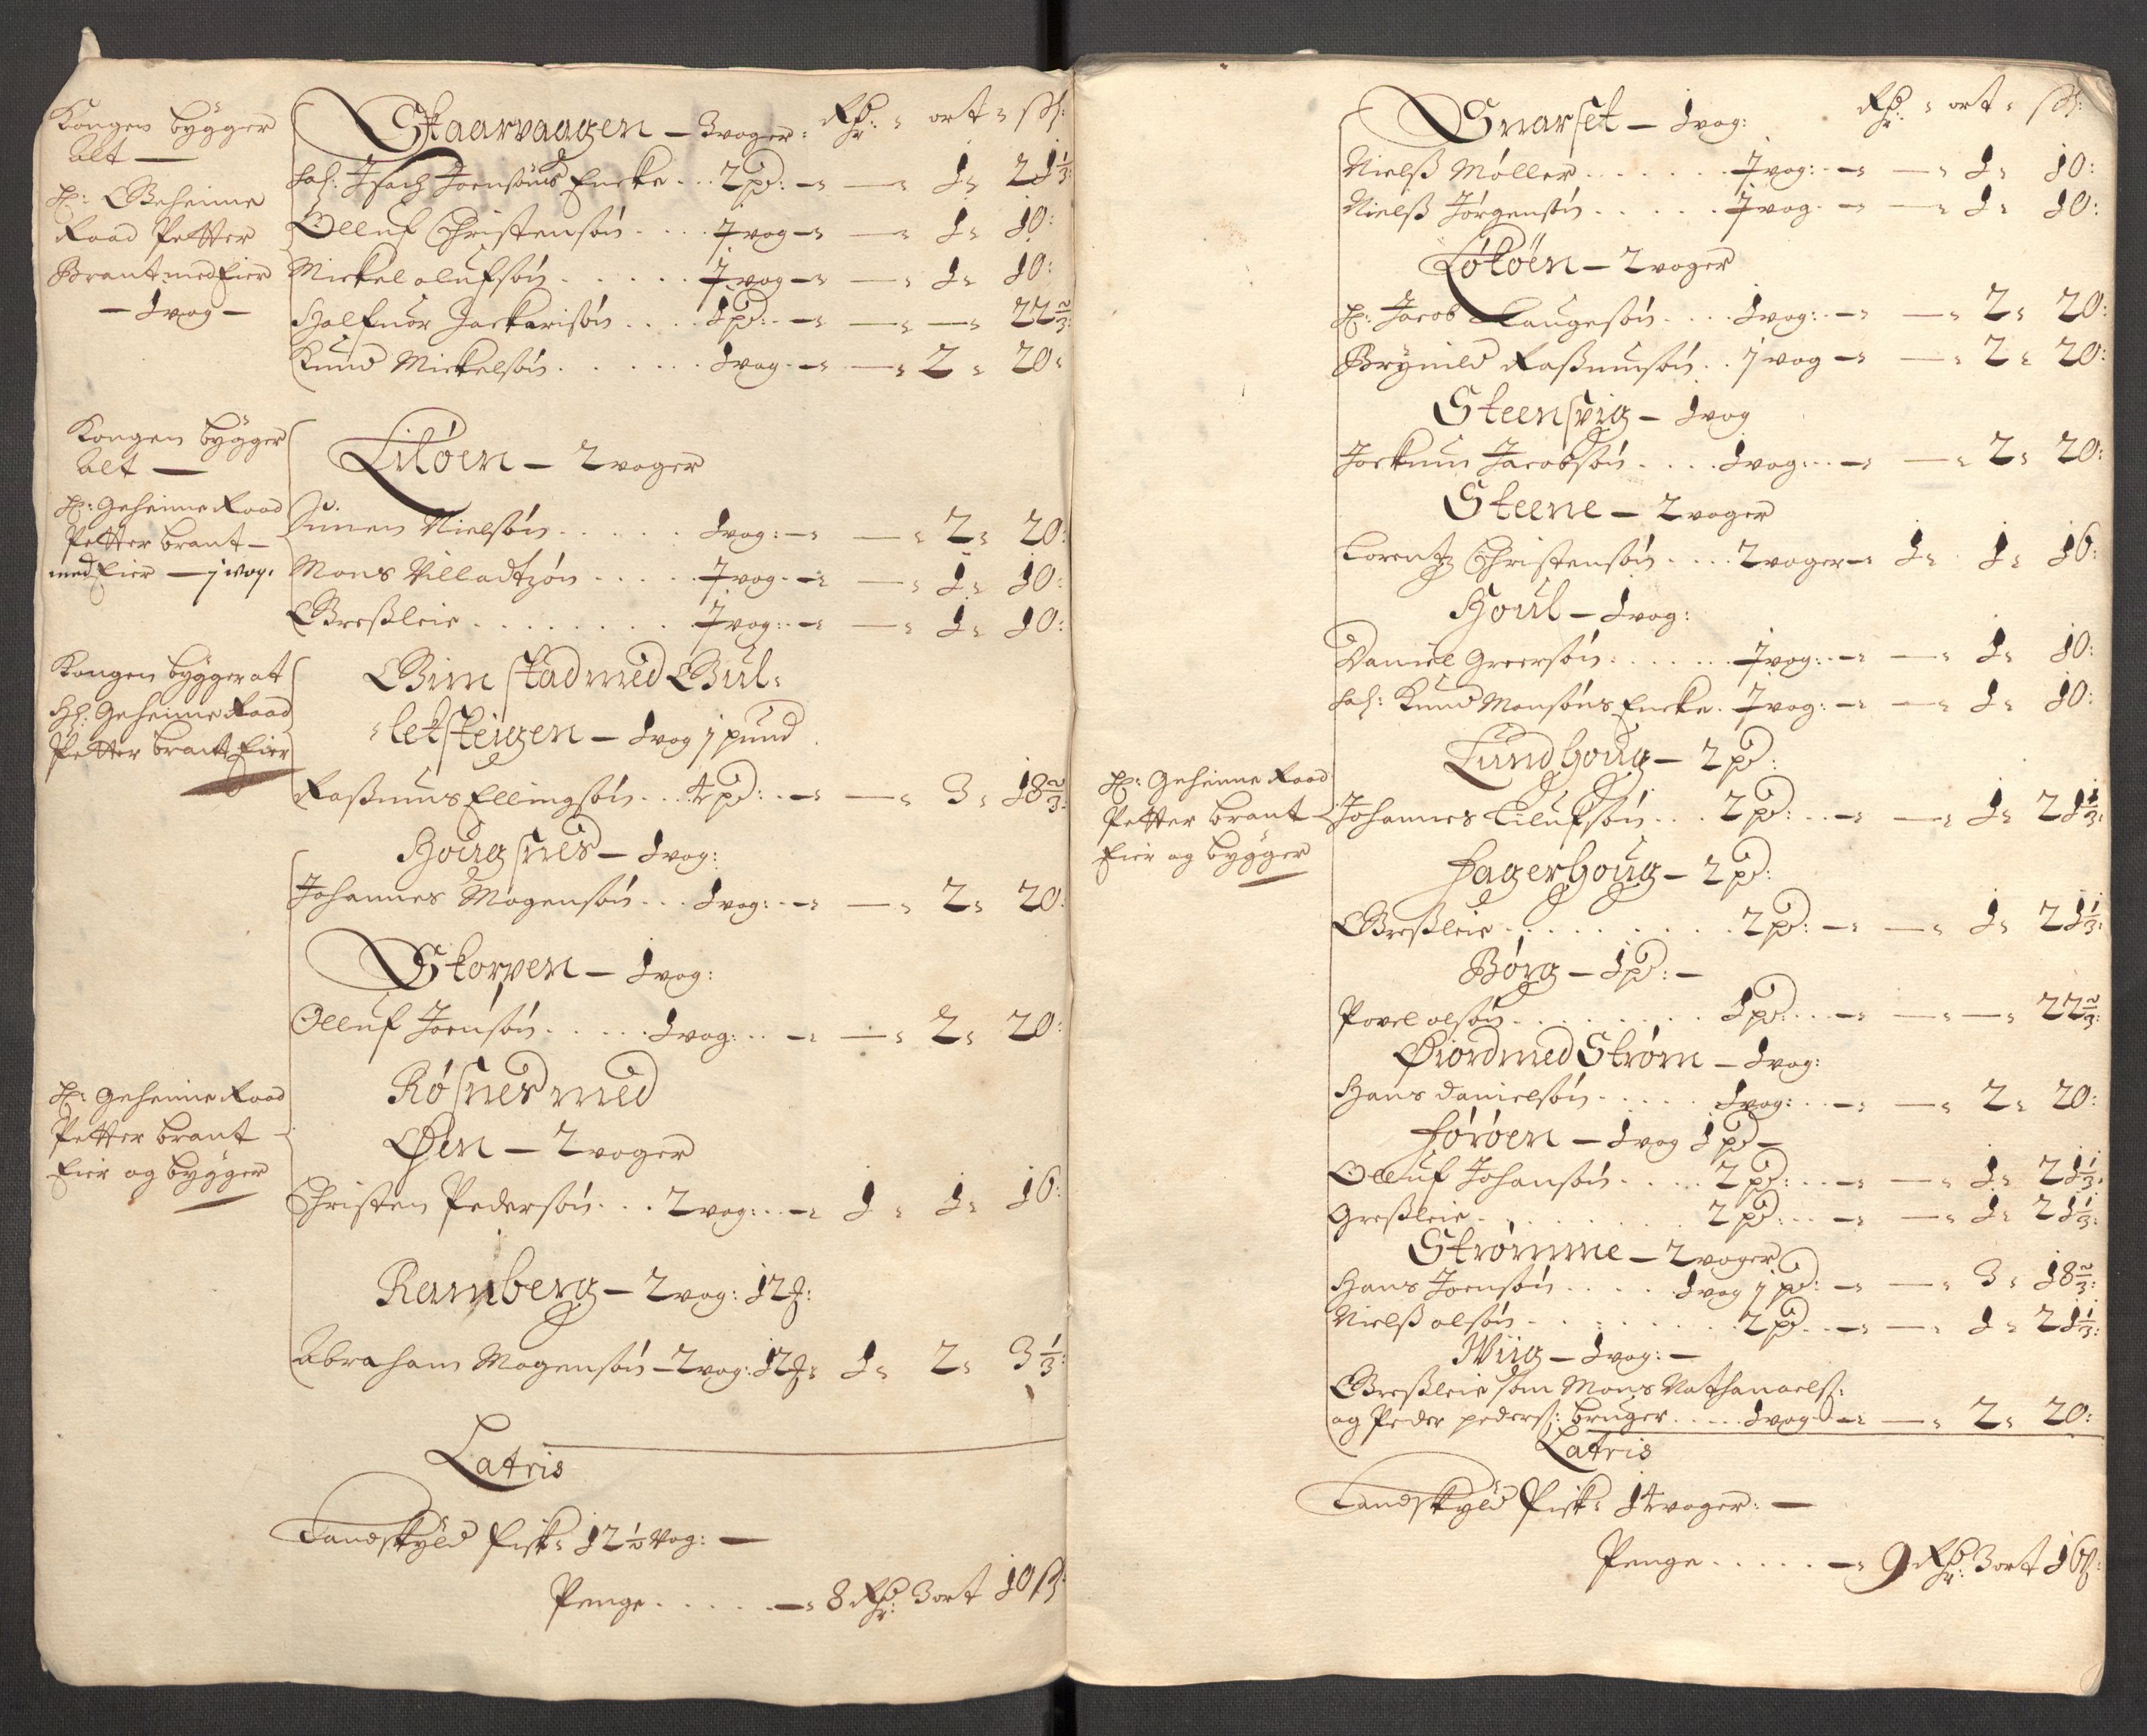 Kongen bygger
alt —
H: Geheime
Raad Petter
Brant med Eier
— 1 vog —
Skaarvaagen — 3 voger: Rdr: ort sh:
Sal: Isach Joensøns Encke . . 2 pd: — — 1 21 1/3
Olluf Christensøn . . . . ½ vog — — 1 10:
Mickel olufsøn . . . . . . ½ vog — — 1 10:
Halfuor Zackarisøn . . . . 1 pd: — — — 22 2/3
Knud Mickelsøn . . . . . . 1 vog — — 2 20
Kongen bygger
alt —
H: Geheime Raad
Petter Brant —
med Eier — 1 vog.
Liløen — 2 voger
Simen Nielsøn . . . . . 1 vog: — — 2 20:
Mons Villadtzøn . . . . . ½ vog — — 1 10:
Gressleie . . . . . . . . ½ vog: — — 1 10:
Kongen bygger at
H: Geheime Raad
Petter brant Eier
Gimstad med Gul:
letsteigen — 1 vog 1 pund
Rassmus Ellingsøn . . 4 pd: — — 3 18 2/3
Hougsnes — 1 vog:
Johannes Mogensøn . . . 1 vog: — — 2 20:
Skorpen — 1 vog:
Olluf Joensøn . . . . . 1 vog: . . — — 2 20:
H: Geheime Raad
Petter brant —
Eier og bygger
Røsnes med
Øen — 2 voger
Christen Pedersøn . . . 2 vog: . . — 1 1 16:
Ramberg — 2 vog: 12 #:
Abraham Mogensøn — 2 vog: 12 # 1 2 3 1/3:
Latris
Landskyld Fisk: 12 ½ vog: —
Penge . . . . . — 8 Rdr: 3 ort 10 sh
Snarset — 1 vog: Rdr: ort sh:
Nielss Møller . . . . . . ½ vog: — — 1 10:
Nielss Jørgensøn . . . . . ½ vog — — 1 10:
Løkøen — 2 voger
H: Jacob Laugesøn . . . . 1 vog: — — 2 20:
Brynild Rassmusøn . . 1 vog — — 2 20:
Steensvig — 1 vog
Jockum Jacobsøn . . . . 1 vog: . . — — 2 20:
Steene — 2 voger
Lorentz Christensøn . . . . 2 voger — 1 1 16:
Houl — 1 vog:
Daniel Greersøn . . . . . . ½ vog: . — — 1 10:
Sal: Knud Monsøns Encke . ½ vog: — — 1 10:
H: Geheime Raad
Petter brant —
Eier og bygger
Lundhoug — 2 pd:
Johannes Eilufsøn . . . 2 pd: . . — — 1 21 1/3:
Fagerhoug — 2 pd:
Gressleie . . . . . . . . . 2 pd: — — 1 21 1/3:
Børg — 1 pd: —
Povel olsøn . . . . . . . . 1 pd: . . — — — 22 2/3:
Øiord med Strøm — 1 vog:
Hans Danielsøn . . . . . 1 vog: . . — — 2 20:
Førøen — 1 vog 1 pd —
Olluf Johansøn . . . . . 2 pd: . . — — 1 21 1/3:
Gressleie . . . . . . . . 2 pd: . . — — 1 21 1/3:
Strømme — 2 voger
Hans Joensøn . . . . 1 vog 1 pd: — — 3 18 2/3:
Nielss olsøn . . . . . . . . 2 pd . . — — 1 21 1/3:
Wiig — 1 vog: —
Gressleie som Mons Nathanaels:
og Peder peders: bruger . . . . 1 vog — — 2 20:
Latris
Landskyld Fisk: 14 voger: —
Penge . . . . . — 9 Rdr: 3 ort 16 sh: